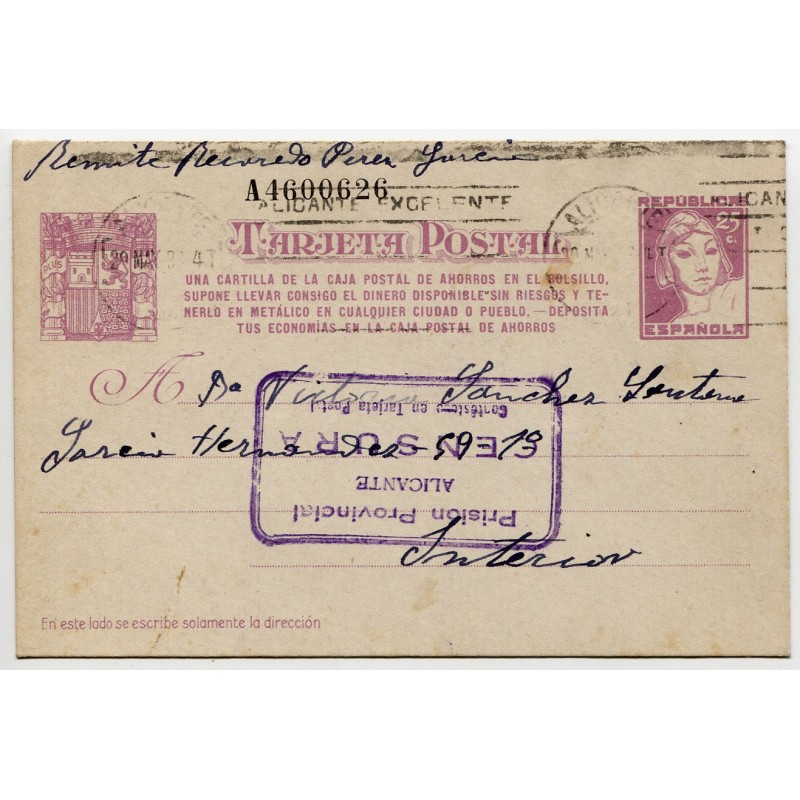 Remite Recaredo Perez Garcia
A4600626
ALICANTE EXCELENTE
29 MAY 4T
TARJETA POSTAL
REPÚBLICA
25 c.
ESPAÑOLA
PLUS
UNA CARTILLA DE LA CAJA POSTAL DE AHORROS EN EL BOLSILLO,
SUPONE LLEVAR CONSIGO EL DINERO DISPONIBLE SIN RIESGOS Y TE-
NERLO EN METÁLICO EN CUALQUIER CIUDAD O PUEBLO. — DEPOSITA
TUS ECONOMÍAS EN LA CAJA POSTAL DE AHORROS
A Dª Victoria Sanchez
Garcia Hernandez - 59 - 1º
Interior
Prisión Provincial
ALICANTE
CENSURA
Contéstese en Tarjeta Postal
En este lado se escribe solamente la dirección